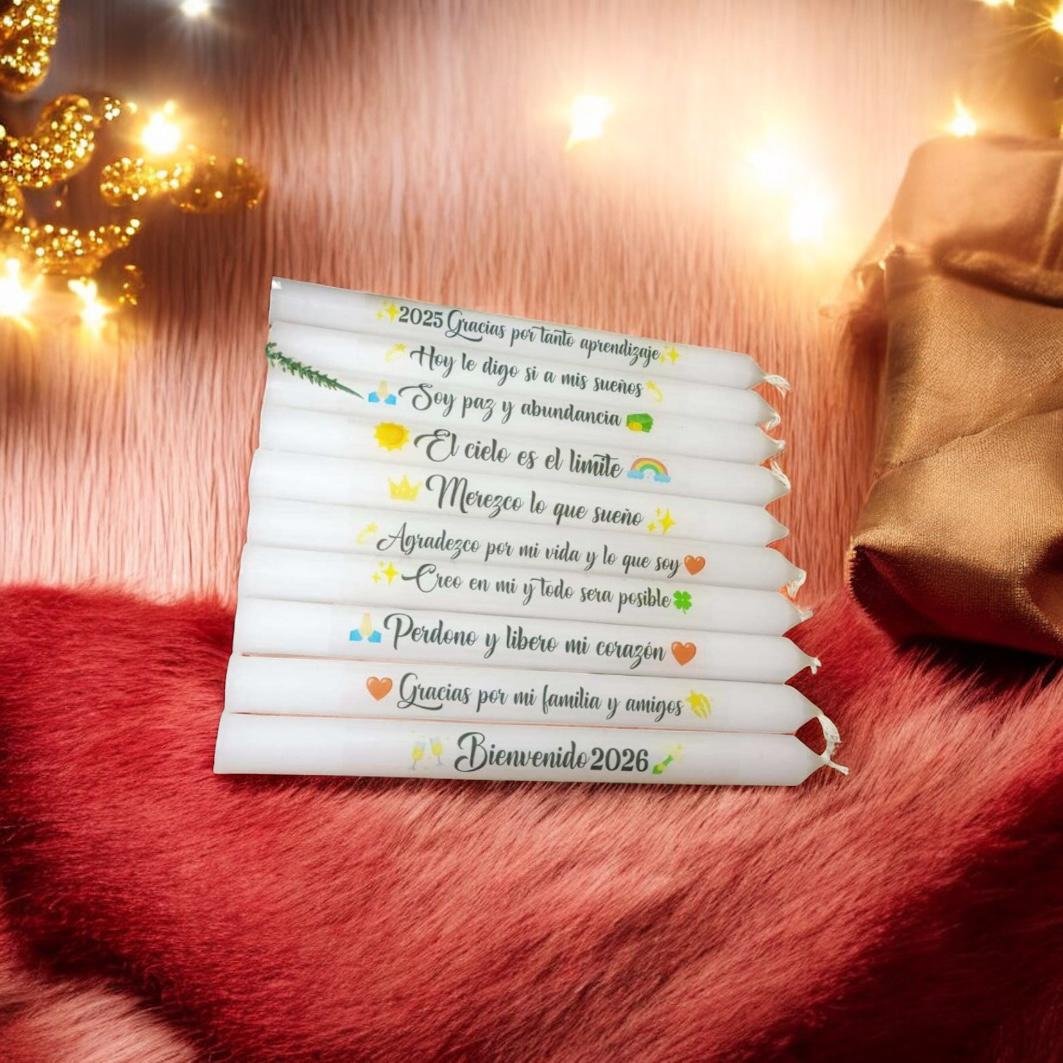 ✨2025 Gracias por tanto aprendizaje✨
Hoy le digo si a mis sueños
🙏Soy paz y abundancia
El cielo es el limite🌈
Merezco lo que sueño✨
Agradezco por mi vida y lo que soy🧡
✨Creo en mi y todo sera posible🍀
🙏Perdono y libero mi corazón🧡
🧡Gracias por mi familia y amigos
🥂Bienvenido 2026🍾